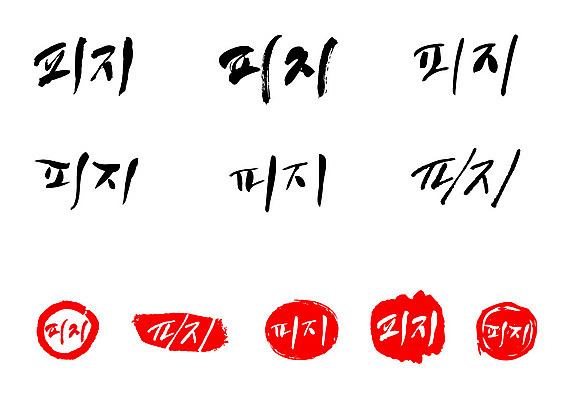 피지 피지 피지
피지 피지 피지
피지 피지 피지 피지 피지